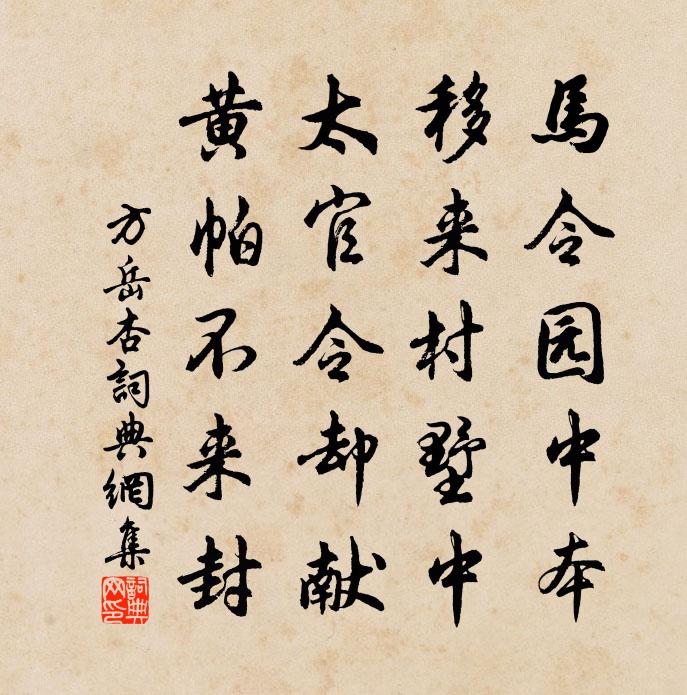 馬令园中本
移来村墅中
太官令却献
黄帕不来封
方岳杏詞典網集
詞典網印